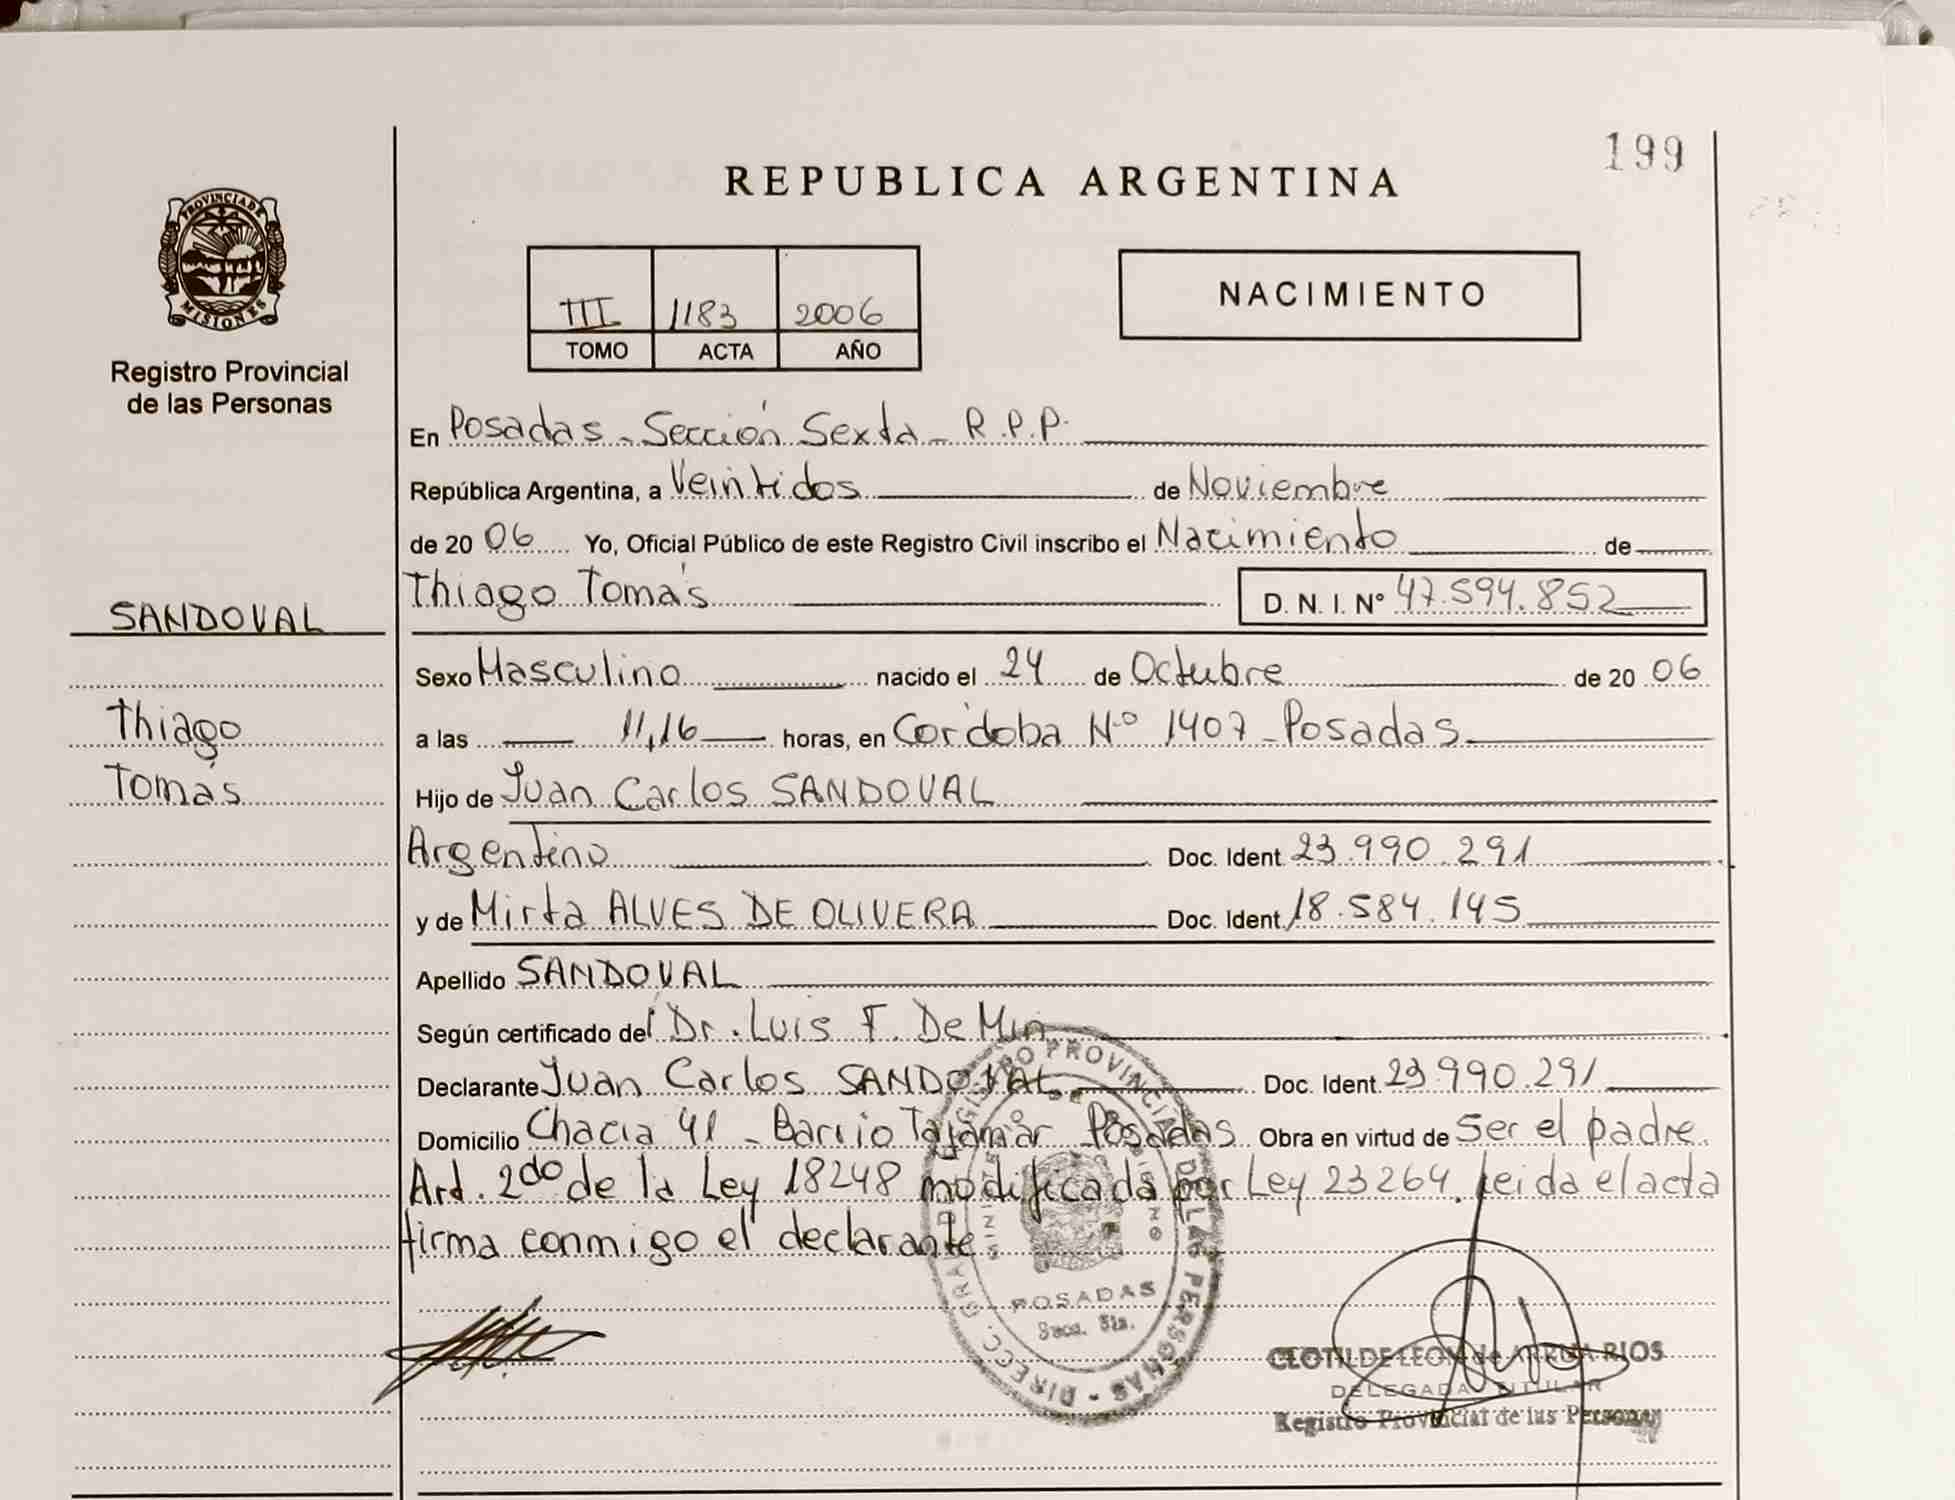 199
REPUBLICA ARGENTINA
PROVINCIA DE
MISIONES
Registro Provincial
de las Personas
III 1183 2006
TOMO ACTA AÑO
NACIMIENTO
En Posadas - Sección Sexta - R.P.P.
República Argentina, a Veintidos de Noviembre
de 20 06 Yo, Oficial Público de este Registro Civil inscribo el Nacimiento de
SANDOVAL
Thiago Tomás D. N. I. Nº 47.594.852
Sexo Masculino nacido el 24 de Octubre de 20 06
Thiago
a las 11,16 horas, en Córdoba Nº 1407 - Posadas
Tomás
Hijo de Juan Carlos SANDOVAL
Argentino Doc. Ident. 23.990.291
y de Mirta ALVES DE OLIVERA Doc. Ident. 18.584.145
Apellido SANDOVAL
Según certificado del Dr. Luis F. De Min
Declarante Juan Carlos SANDOVAL Doc. Ident. 23.990.291
Domicilio Chacra 41 - Barrio Tajamar Posadas Obra en virtud de Ser el padre.
Art. 2do de la Ley 18248 modificada por Ley 23264. Leida el acta
firma conmigo el declarante.
DIRECC. GRAL REGISTRO PROVINCIAL DE LAS PERSONAS
MINISTERIO DE GOBIERNO
POSADAS
Secc. 6ta.
CLOTILDE LEON de RIOS
DELEGADA TITULAR
Registro Provincial de las Personas